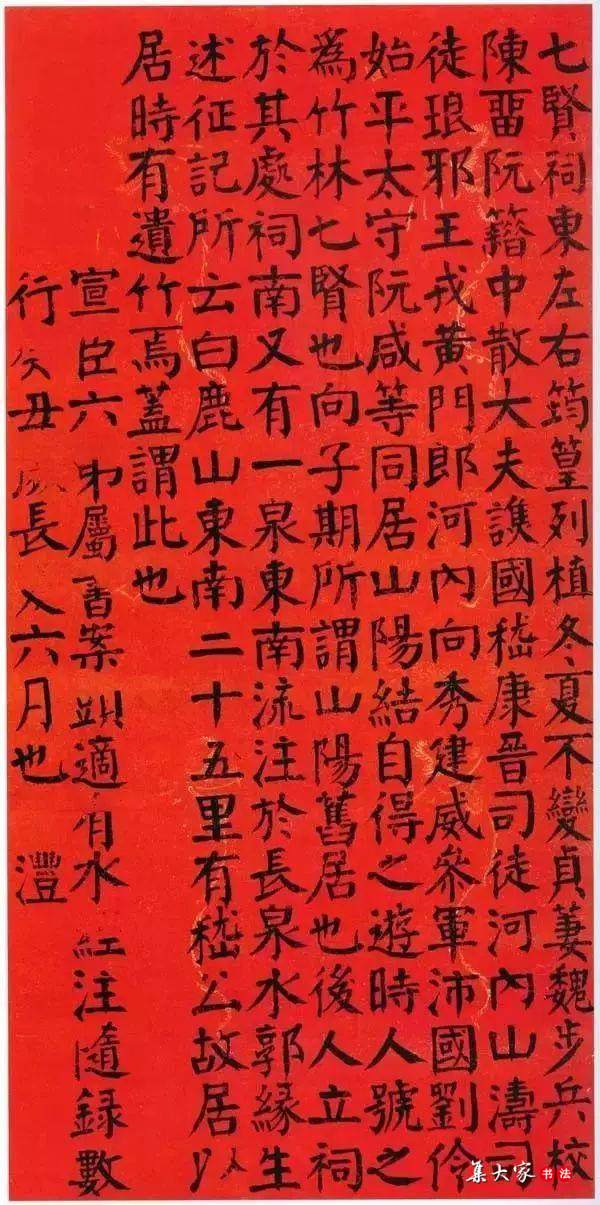 七賢祠東左右筠篁列植冬夏不變貞萋魏步兵校
陳畱阮籍中散大夫譙國嵇康晉司徒河內山濤司
徒琅邪王戎黃門郎河內向秀建威參軍沛國劉伶
始平太守阮咸等同居山陽結自得之遊時人號之
為竹林七賢也向子期所謂山陽舊居也後人立祠
於其處祠南又有一泉東南流注於長泉水郭緣生
述征記所云白鹿山東南二十五里有嵇公故居以
居時有遺竹焉蓋謂此也
宣臣六弟屬書案頭適有水注隨錄數
行丑長六月也 澧
集大家 书法